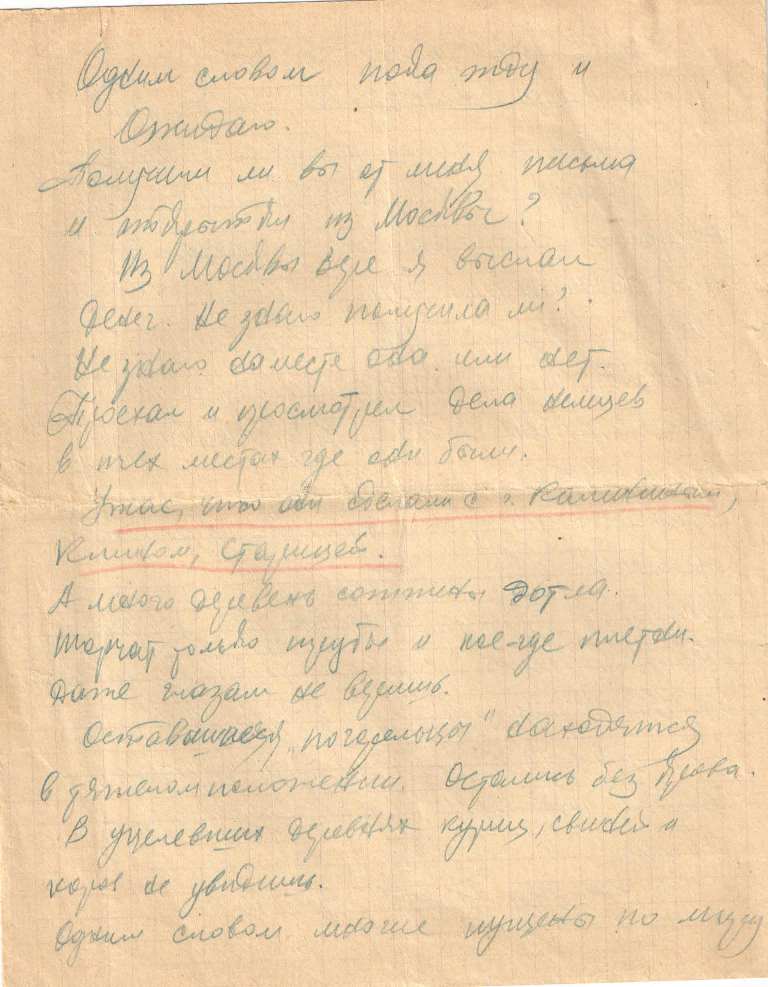 Одним словом пока жду и
Ожидаю.
Получили ли вы от меня письма
и открытки из Москвы?
Из Москвы Вере я выслал
денег. Не знаю получила ли?
Не знаю на месте она или нет.
Проехал и просмотрел дела немцев
в тех местах где они были.
Ужас, что они сделали с г. Калинином,
Клином, Старицей.
А много деревень сожжены дотла.
Торчат только трубы и кое-где плетни.
Даже глазам не веришь.
Оставшиеся „погорельцы" находятся
в тяжелом положении. Остались без крова.
В уцелевших деревнях куриц, свиней и
коров не увидишь.
Одним словом многие пущены по миру